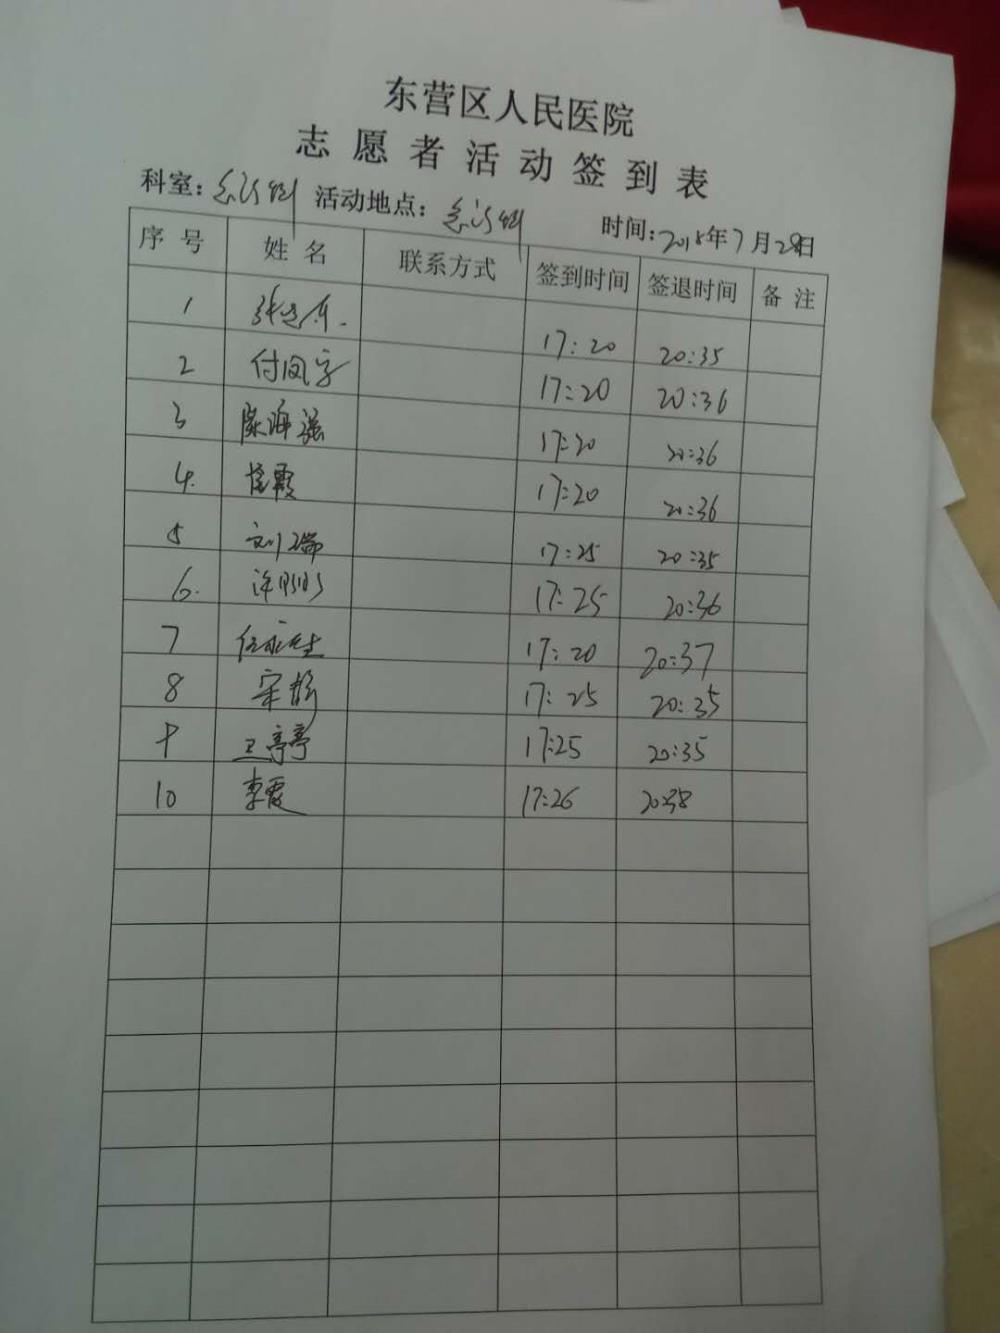 东营区人民医院
志愿者活动签到表
科室: 急诊科 活动地点: 急诊科 时间: 2018年7月28日
序号 姓名 联系方式 签到时间 签退时间 备注
1 17:20 20:35
2 付凤字 17:20 20:36
3 海强 17:20 20:36
4. 霞 17:20 20:36
5 刘瑞 17:25 20:35
6. 许明明 17:25 20:36
7 任永生 17:20 20:37
8 宋 17:25 20:35
9 王亭亭 17:25 20:35
10 李霞 17:26 20:38